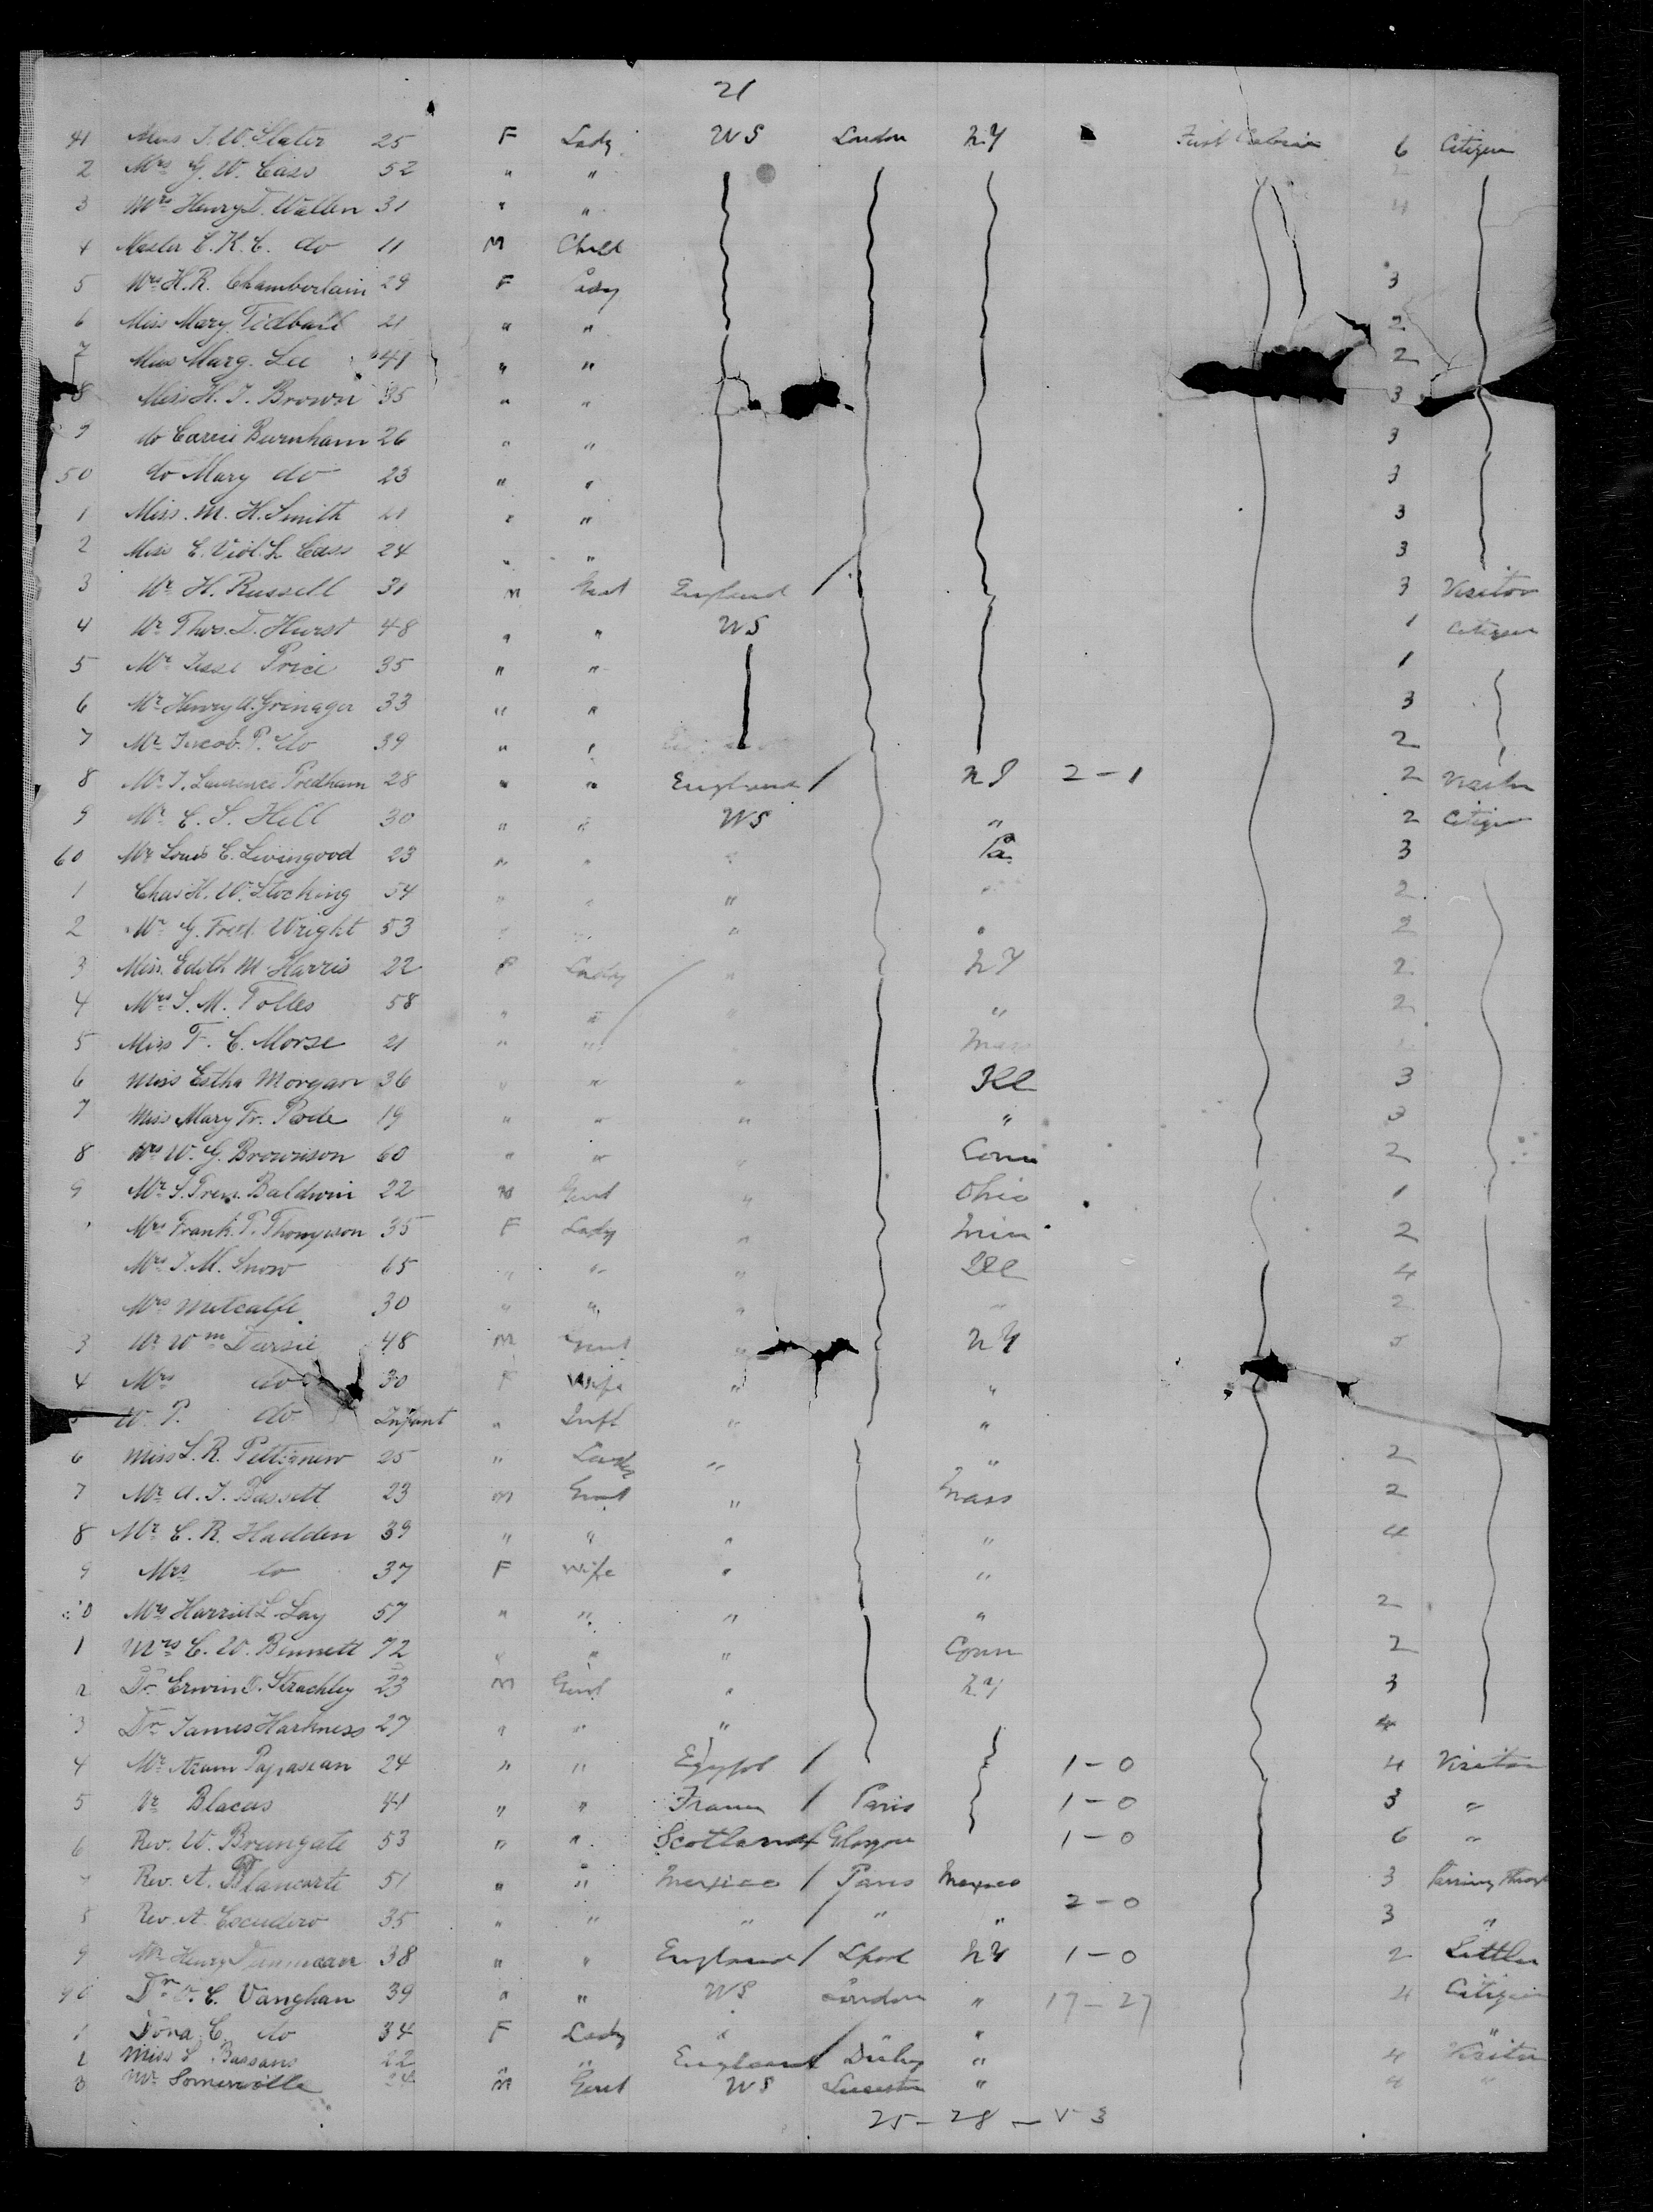 21
41 Miss J. W. Slater 25 F Lady US London NY First Cabin 6 Citizen
2 Mrs G. W. Cass 52 " "
3 Mrs Henry D. Wallen 31 " " 4
4 Master C. K. C. do 11 M Child
5 Mrs H. R. Chamberlain 29 F Lady 3
6 Miss Mary Tidball 21 " " 2
7 Miss Marg. Lee 41 " " 2
8 Miss H. J. Brown 35 " " 3
9 do Carrie Burnham 26 " " 3
50 do Mary do 23 " " 3
1 Miss M. H. Smith 21 " " 3
2 Miss E. Viol. L. Cass 24 " " 3
3 Mr H. Russell 31 M Gent England / 3 Visitor
4 Mr Thos. D. Hurst 48 " " US 1 Citizen
5 Mr Jesse Price 35 " " 1
6 Mr Henry A. Grinager 33 " " 3
7 Mr Jacob P. do 39 " " 2
8 Mr J. Laurence Predham 28 " " England / NJ 2-1 2 Visitor
9 Mr C. S. Hill 30 " " US " 2 Citizen
60 Mr Louis C. Livingood 23 " " " Pa. 3
1 Chas H. W. Stocking 54 " " " " 2
2 Mr G. Fred. Wright 53 " " " " 2
3 Miss Edith M Harris 22 F Lady " NY 2
4 Mrs S. M. Tolles 58 " " " " 2
5 Miss F. C. Morse 21 " " " Mass
6 Miss Estha Morgan 36 " " " Ill 3
7 Miss Mary Fr. Poole 19 " " " " 3
8 Mrs W. G. Brownson 60 " " " Conn 2
9 Mr S. Pren. Baldwin 22 M Gent " Ohio 1
Mrs Frank P. Thompson 35 F Lady " Minn 2
Mrs J. M. Snow 65 " " " Ill 4
Mrs Metcalfe 30 " " " " 2
3 Mr Wm Dursie 48 M Gent " NY 5
4 Mrs do 30 F Wife " "
5 W. P. do Infant " Inft " "
6 Miss L. R. Pettignew 25 " Lady " " 2
7 Mr A. J. Bassett 23 M Gent " Mass 2
8 Mr C. R. Hadden 39 " " " " 4
9 Mrs do 37 F Wife " "
0 Mrs Harriet L. Lay 57 " " " " 2
1 Mrs C. W. Bennett 72 " " " Conn 2
2 Dr Erwin D. Strachley 23 M Gent " NY 3
3 Dr James Harkness 27 " " " 4
4 Mr Aram Papasian 24 " " Egypt / 1-0 4 Visitor
5 Mr Blacas 41 " " France / Paris 1-0 3 "
6 Rev. W. Brungate 53 " " Scotland / Glasgow 1-0 6 "
7 Rev. A. Blancarte 51 " " Mexico / Paris Mexico 3 Passing through
8 Rev. A. Escudero 35 " " " / " " 2-0 3 "
9 Mr Henry 38 " " England / Lpool NY 1-0 2 Settler
90 Dr V. C. Vanghan 39 " " US London " 17-27 4 Citizen
1 Dona C. do 34 F Lady " " "
2 Miss S. Bassano 22 " " England / Derby " 4 Visitor
3 Mr Somerville 24 M Gent US Leicester " 4 "
25 - 28 - V 3